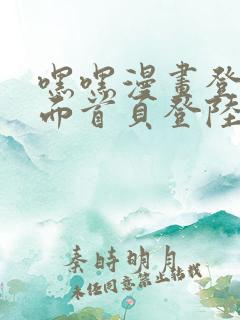 嘿嘿漫畫登
面首頁登陸
秦時明月
未经同意禁止转载